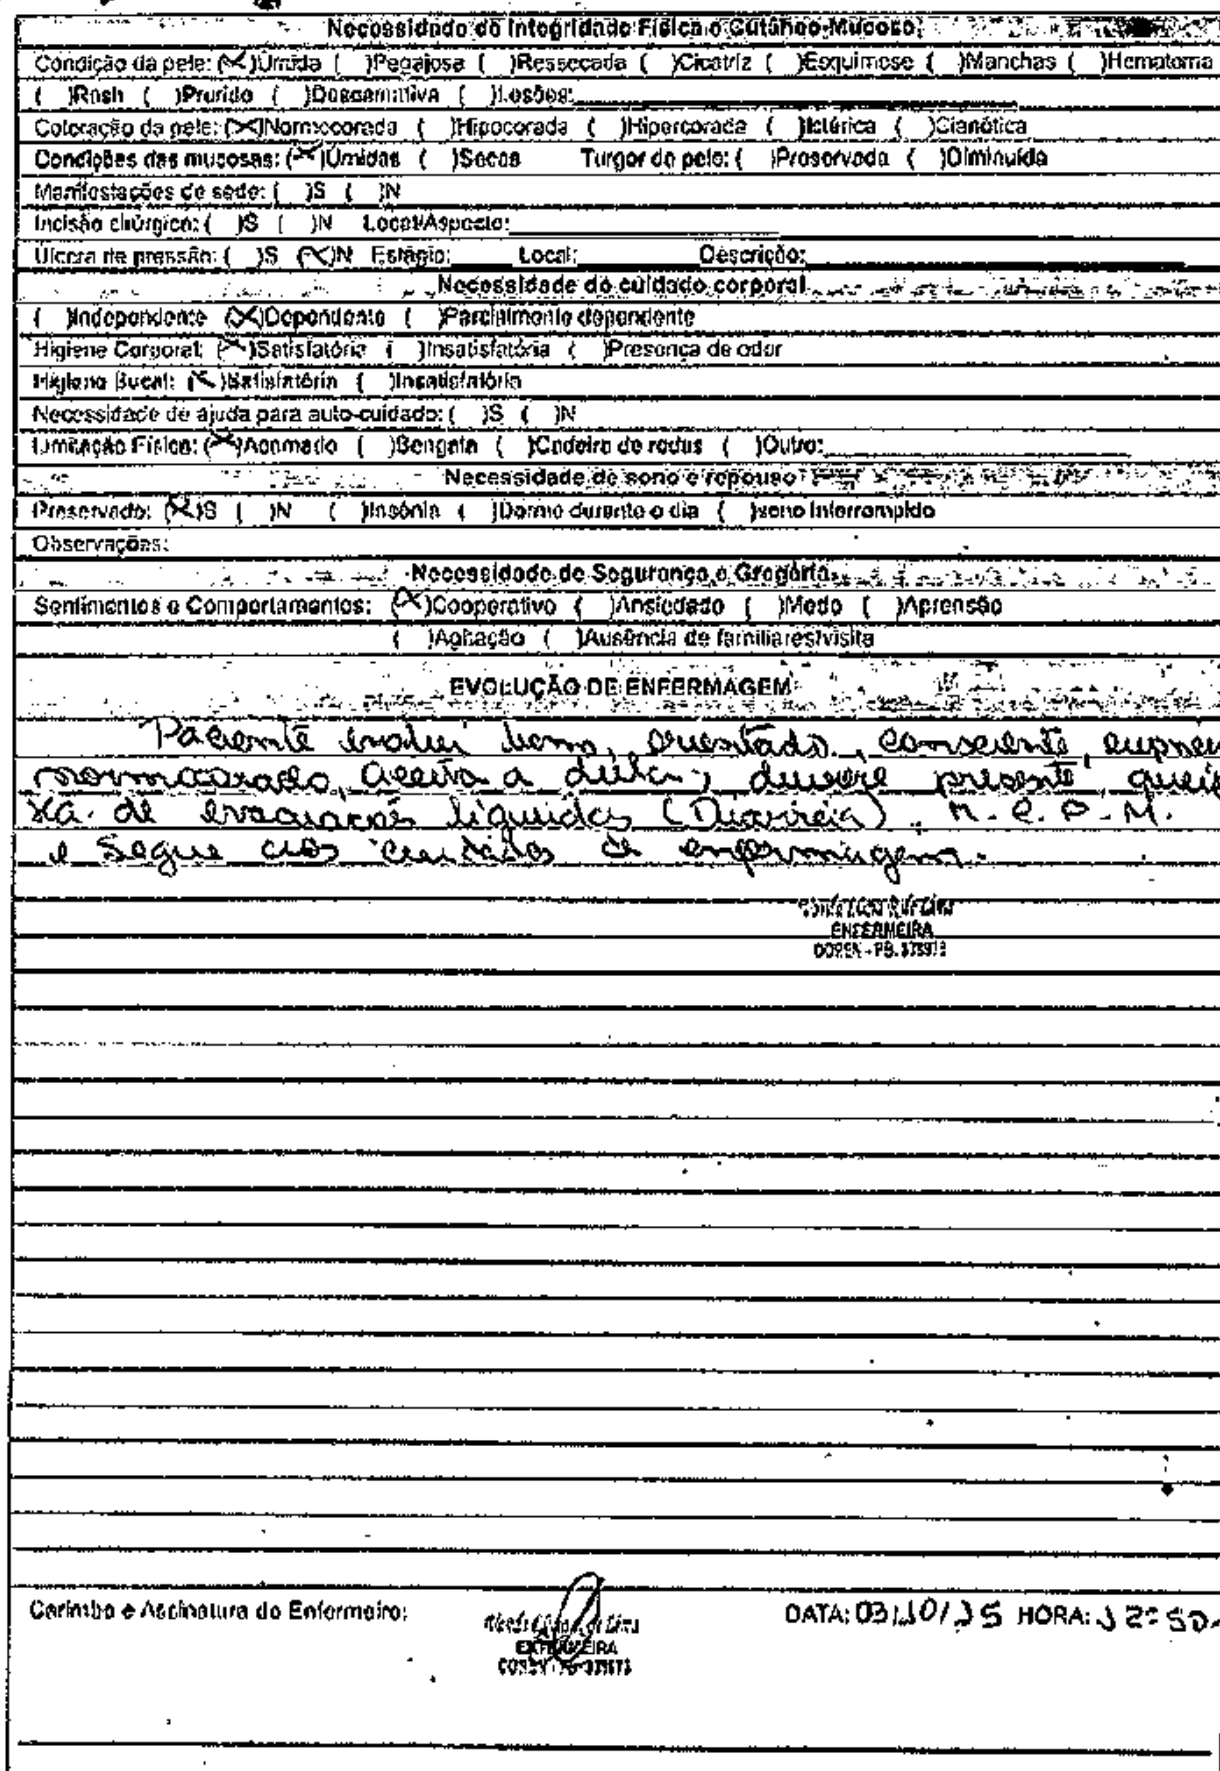 Necessidade de Integridade Física e Cutâneo-Mucosa
Condição da pele: (X)Úmida ( )Pegajosa ( )Ressecada ( )Cicatriz ( )Esquimose ( )Manchas ( )Hematoma
( )Rash ( )Prurido ( )Descamativa ( )Lesões:
Coloração da pele: (X)Normocorada ( )Hipocorada ( )Hipercorada ( )Ictérica ( )Cianótica
Condições das mucosas: (X)Úmidas ( )Secas Turgor da pele: ( )Preservada ( )Diminuída
Manifestações de sede: ( )S ( )N
Incisão cirúrgica: ( )S ( )N Local/Aspecto:
Úlcera de pressão: ( )S (X)N Estágio: Local: Descrição:
Necessidade de cuidado corporal
( )Independente (X)Dependente ( )Parcialmente dependente
Higiene Corporal: (X)Satisfatória ( )Insatisfatória ( )Presença de odor
Higiene Bucal: (X)Satisfatória ( )Insatisfatória
Necessidade de ajuda para auto-cuidado: ( )S ( )N
Limitação Física: (X)Acamado ( )Bengala ( )Cadeira de rodas ( )Outro:
Necessidade de sono e repouso
Preservado: (X)S ( )N ( )Insônia ( )Dorme durante o dia ( )sono interrompido
Observações:
Necessidade de Segurança e Gregária
Sentimentos e Comportamentos: (X)Cooperativo ( )Ansiedade ( )Medo ( )Aprensão
( )Agitação ( )Ausência de familiares/visita
EVOLUÇÃO DE ENFERMAGEM
Paciente evolui bem, orientado, consciente, eupnei
normocorado, aceita a dieta, diurese presente, quei
xa de evacuações líquidas (Diarreia). M.C.P.M.
e segue aos cuidados da enfermagem.
ENFERMEIRA
COREN - PB.
Carimbo e Assinatura do Enfermeiro:
DATA: 03/10/15 HORA: 12:50
ENFERMEIRA
COREN - PB